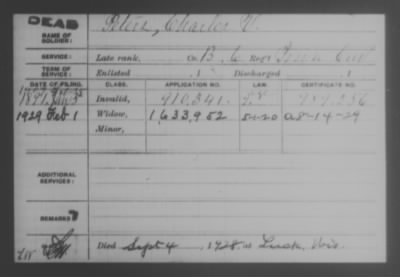 DEAD
NAME OF SOLDIER: Charles V.
SERVICE: Late rank, Co. B, 6 Reg't Iowa Cav
TERM OF SERVICE: Enlisted , 1 Discharged , 1
DATE OF FILING. CLASS. APPLICATION NO. LAW. CERTIFICATE NO.
Invalid,
1929 Feb 1 Widow, 1,633,952 5-1-20 A8-14-29
Minor,
ADDITIONAL SERVICES:
REMARKS:
Died Sept 4, 1928, at Luck, Wis.